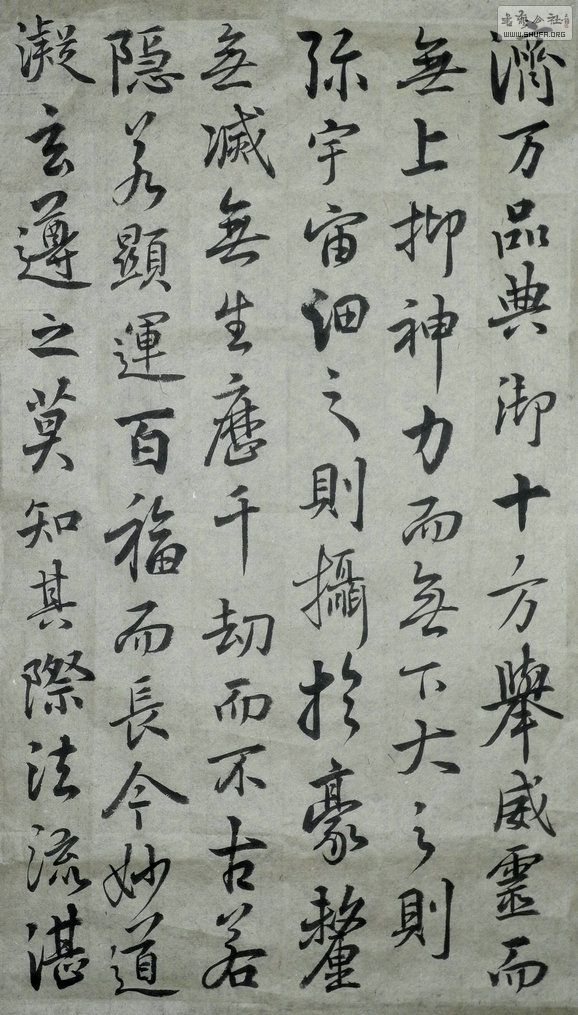 濟万品典御十方舉威靈而
無上抑神力而無下大之則
弥宇宙細之則攝於豪釐
無滅無生歷千劫而不古若
隐若顯運百福而長今妙道
凝玄遵之莫知其際法流湛
WWW.SHUFA.ORG